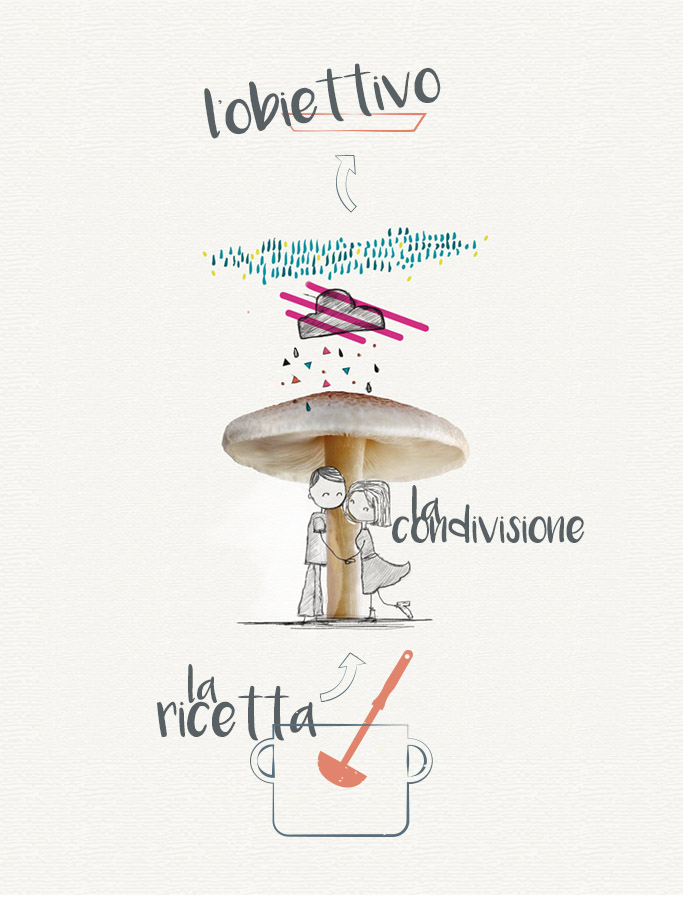 l'obiettivo
la
condivisione
la
ricetta